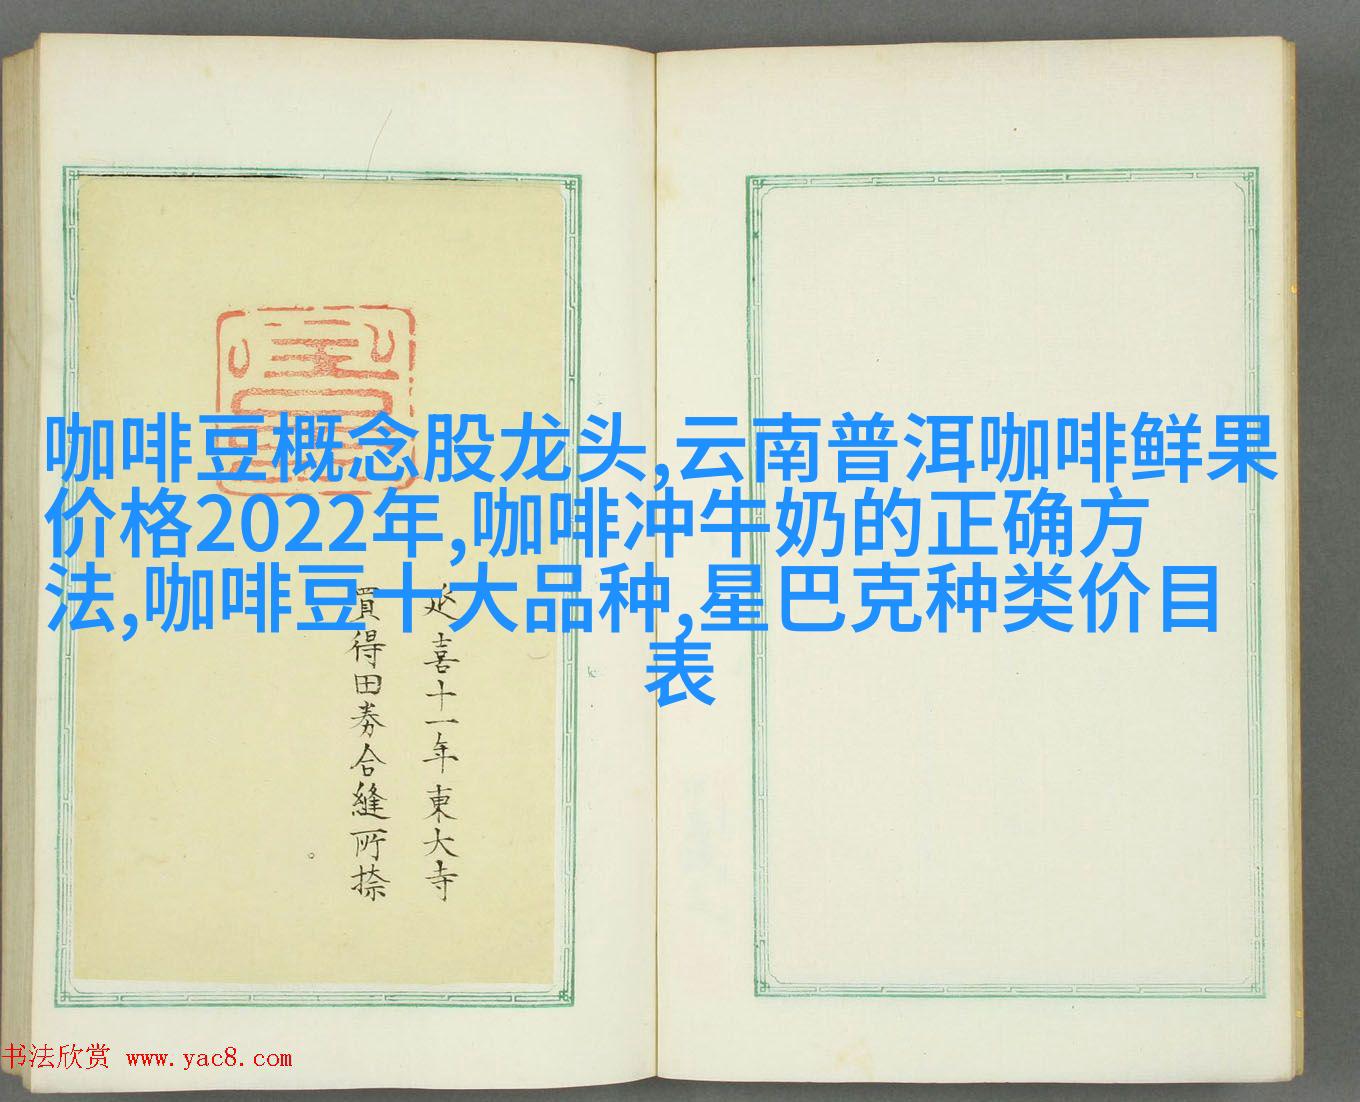 咖啡豆概念股龙头,云南普洱咖啡鲜果
价格2022年,咖啡冲牛奶的正确方
法,咖啡豆十大品种,星巴克种类价目
表
延喜十一年東大寺
買得田券合縫所捺
书法欣赏 www.yac8.com